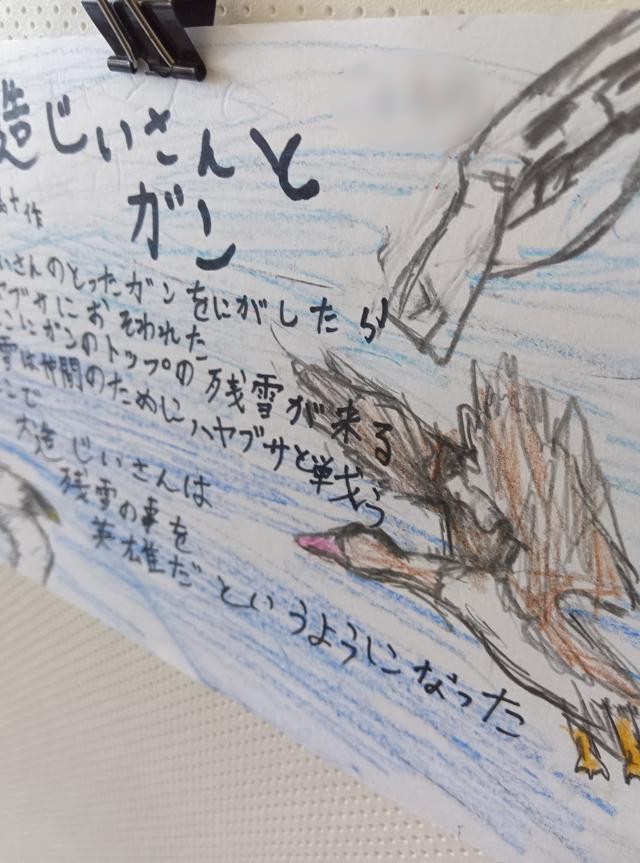 造じいさんと
ガン
十作
いさんのとったガンをにがしたら
ヤブサにおそわれた
こにガンのトップの残雪が来る
雪は仲間のためにハヤブサと戦う
こで
大造じいさんは
残雪の事を
英雄だというようになった